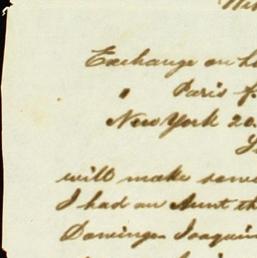 Exchange on
" Paris f
New York 20.
will make
I had an Aunt th
Domingo Joaquin